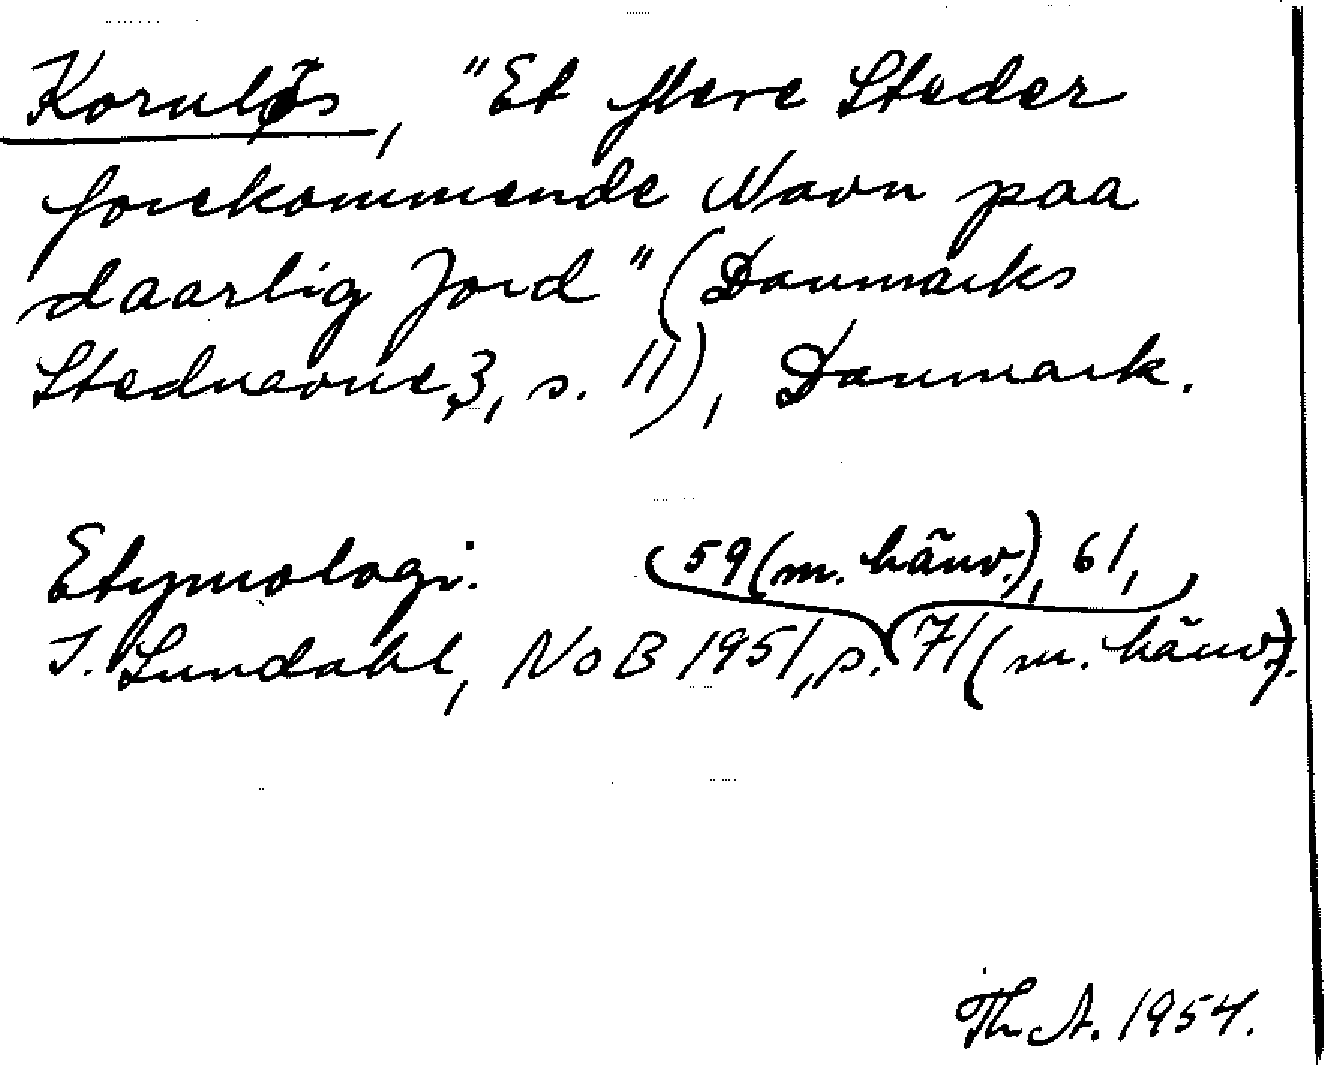 Kornløs, "Et flere Steder
forekommende Navn paa
daarlig Jord" (Danmarks
Stednavne, 3, s. 11), Danmark.
Etymologi:
59 (m. hänv.), 61,
I. Lundahl, NoB 1951, s. 71 (m. hänv.).
Th. A. 1954.